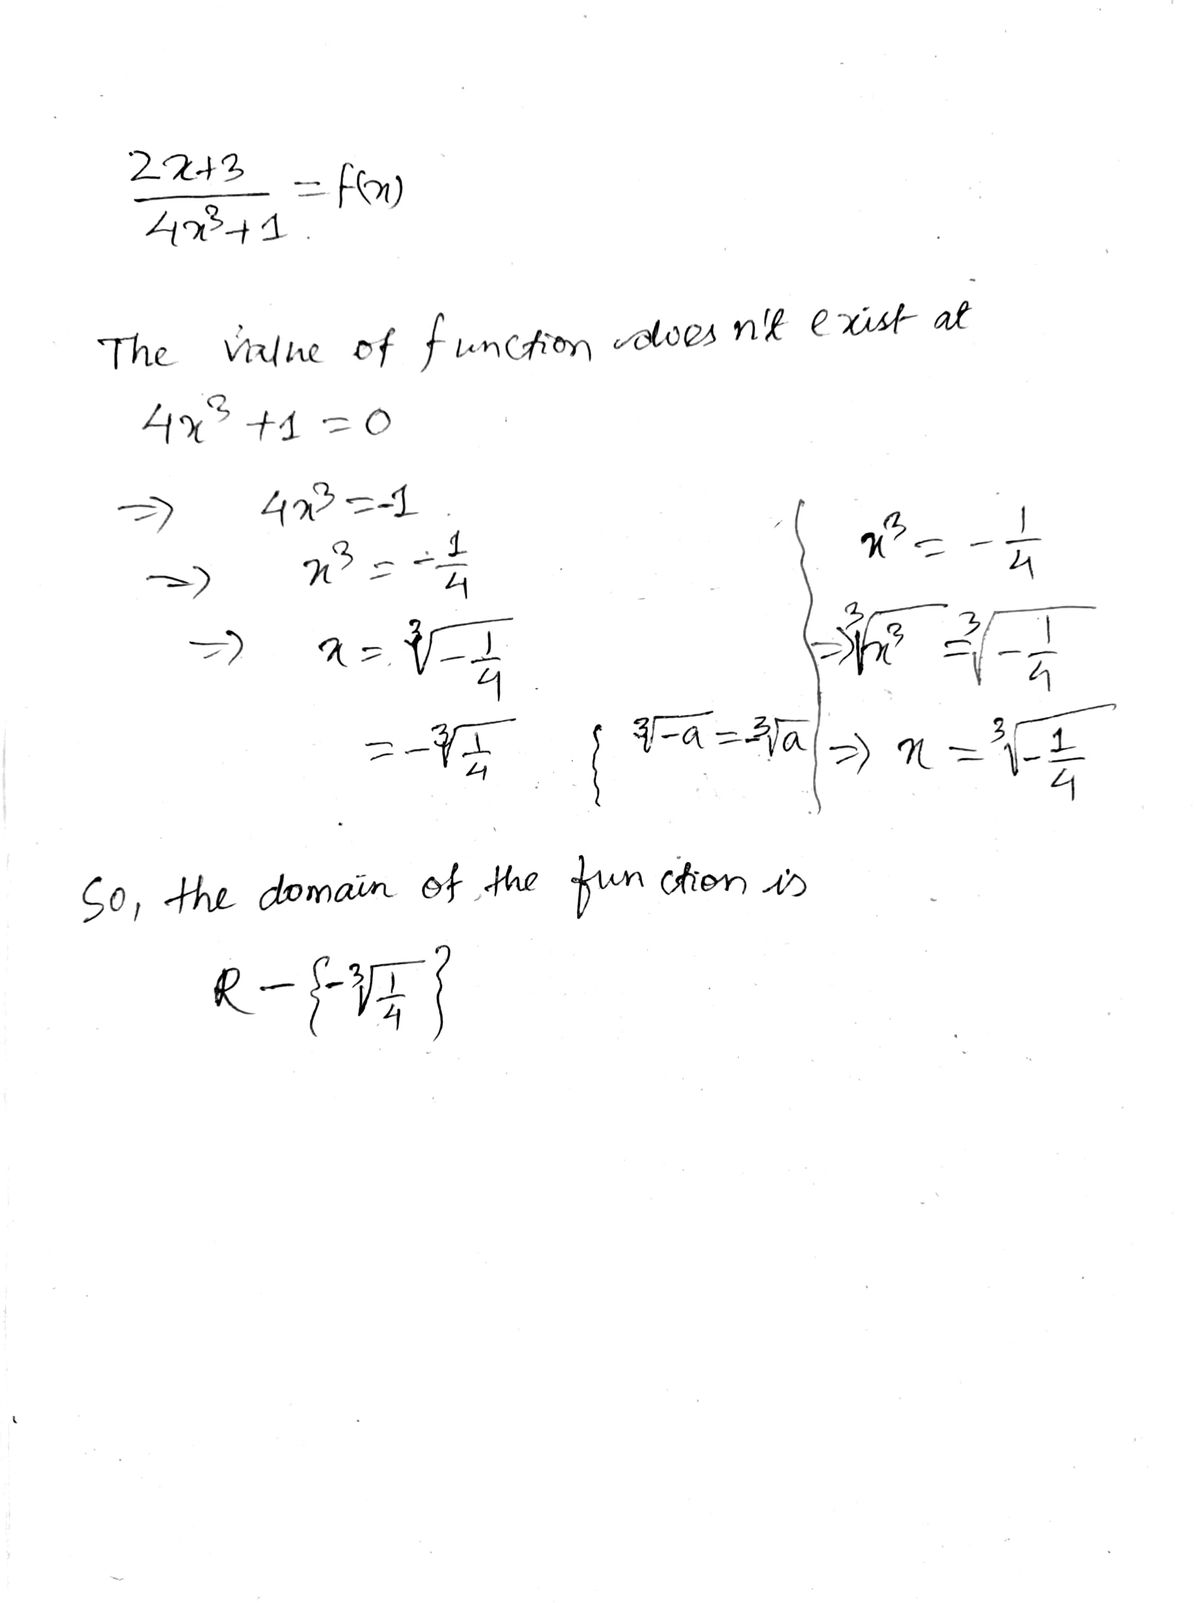 2x+3
/ 4x³+1 = f(x)
The value of function doesn't exist at
4x³ +1 = 0
=> 4x³ = -1
=> x³ = -1/4
=> x = ∛(-1/4)
= -∛(1/4) { ∛-a = -∛a
x³ = -1/4
=> ∛x³ = ∛(-1/4)
=> x = ∛(-1/4)
So, the domain of the function is
R - {-∛(1/4)}